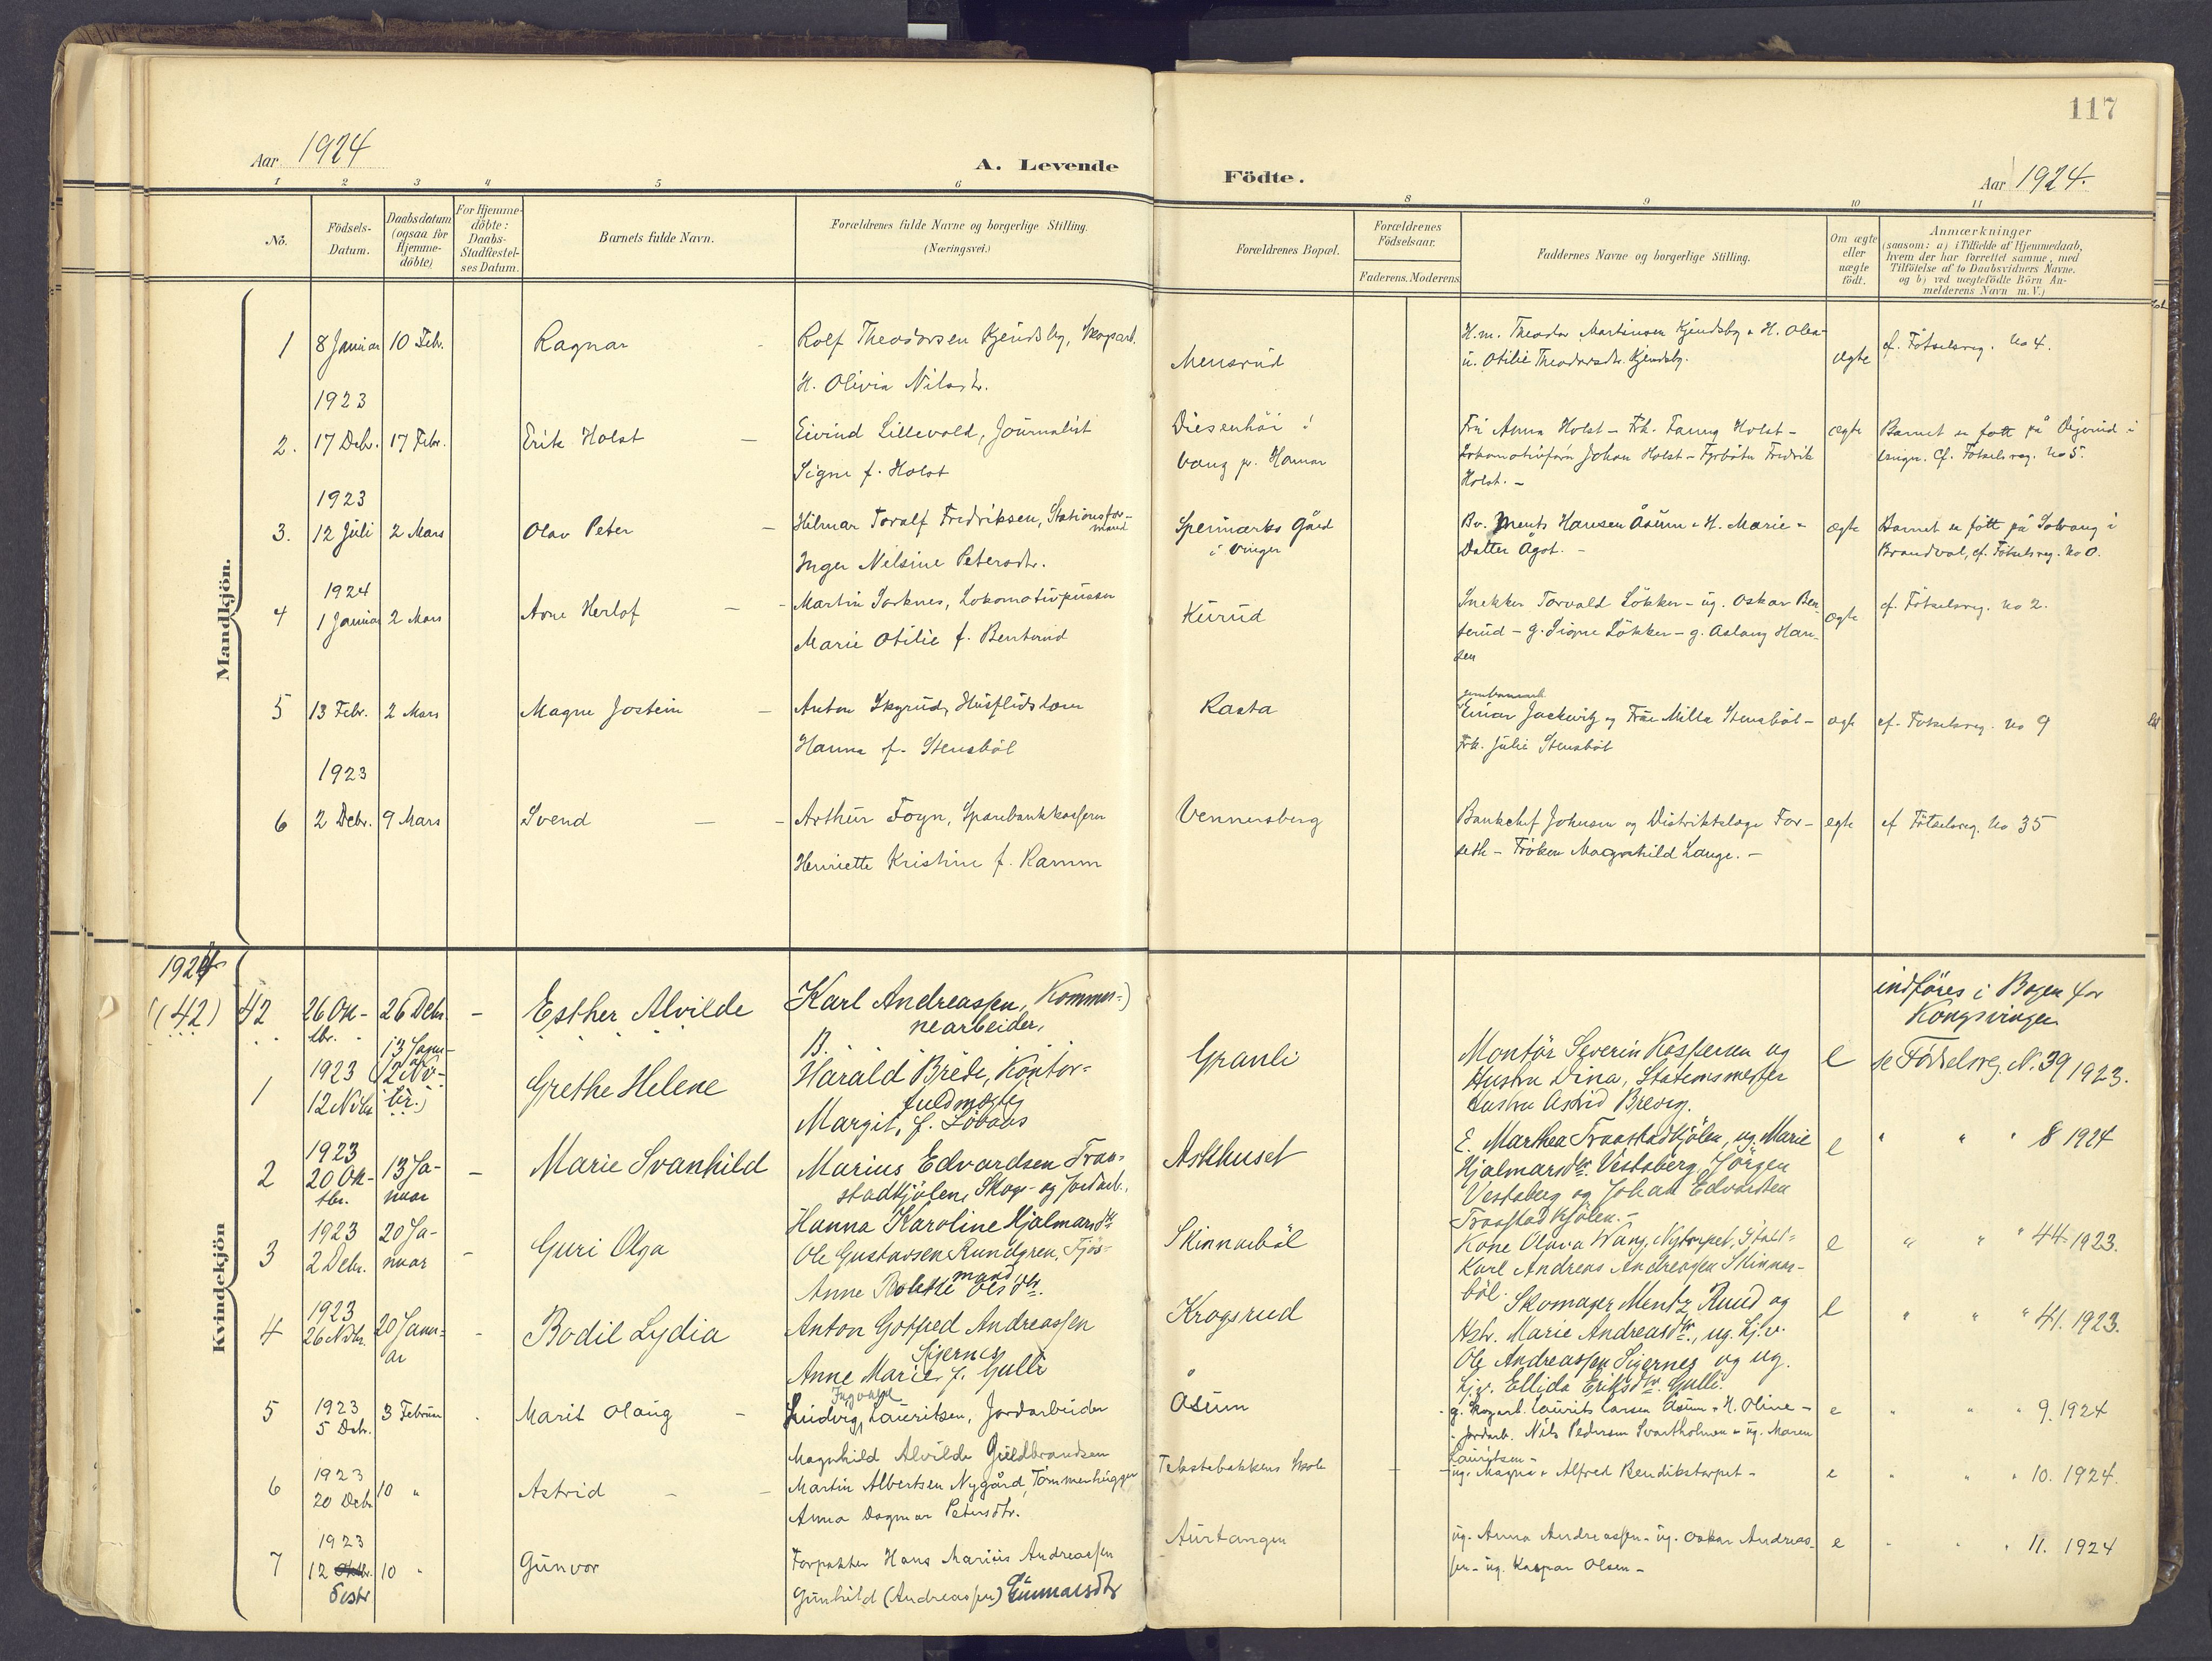 117
Aar 1924
A. Levende
Födte.
Aar 1924.
1 2 3 4 5 6 8 9 10 11
No.
Födsels-
Datum.
Daabsdatum
(ogsaa for
Hjemme-
döbte)
For Hjemme-
döbte:
Daabs-
Stadfæstel-
ses Datum.
Barnets fulde Navn.
Forældrenes fulde Navne og borgerlige Stilling.
(Næringsvei.)
Forældrenes Bopæl.
Forældrenes
Födselsaar.
Faderens. Moderens
Faddernes Navne og borgerlige Stilling.
Om ægte
eller
uægte
født.
Anmærkninger
(saasom: a) i Tilfælde af Hjemmedaab,
hvem der har forrettet samme, med
Tilföielse af to Daabsvidners Navne.
og b) ved uægtefödte Börn An-
melderens Navn m. V.)
Mandkjön.
1 8 Januar 10 Feb. Ragnar - Rolf Theodorsen Kjendsby, Skogarb.
H. Olivia Nilsdtr.
Mensrud
H.m. Theodor Martinsen Kjendsby & H. Olea-
u. Otilie Theodorsdtr. Kjendsby.
ægte
cf. Fötselsreg. No 4.
1923
2. 17 Deb. 17 Febr. Erik Holst - Eivind Lillevold, Journalist
Signe f. Holst
Diesenhöi i
Vang p. Hamar
Fru Anna Holst - Frk. Fanny Holst -
Lokomotivförer Johan Holst - Fyrböter Fredrik
Holst. -
ægte
Barnet er fött på
Cf. Fötselsreg. No 5.
1923
3. 12 Juli 2 Mars Olav Peter - Hilmar Toralf Fredriksen, Stationsfor-
mand
Inger Nelsine Petersdtr.
Spermarks Gård
i Vinger
Bv. Ments Hansen Åsum & H. Marie -
Datter Ågot. -
ægte
Barnet er fött på Solvang i
Brandval, cf. Fötselsreg. No 0.
1924
4 1 Januar 2 Mars Arne Herlof - Martin Sorknes, Lokomotivpusser
Marie Otilie f. Benterud
Kurud
Snekker Torvald Lökker - ug. Oskar Ben-
terud - g. Signe Lökker - g. Aslaug Han-
sen
ægte
cf. Fötselsreg. No 2.
5 13 Febr. 2 Mars Magne Jostein - Anton Skyrud, Husflidslærer
Hanna f. Stensböl
Rasta
Einar Jackwitz og Frue Milla Stensböl -
Frk. Julie Stensböl
ægte
cf. Fötselsreg. No 9
1923
6 2 Debr. 9 Mars Svend - Arthur Foyn, Sparebankkasserer
Henriette Kristine f. Ramm
Vennersberg
Bankchef Johnsen og Distriktslæge For-
seth - Fröken Magnhild Lange. -
egte
cf Fötselsreg. No 35
Kvindekjön
1924
(42) 42 26 Ok-
tbr. 26 Debr. - Esther Alvilde Karl Andreassen, Kommu-
nearbeider,
B.
indföres i Bogen for
Kongsvinger
1 1923
12 Nvbr. 13 Janu-
ar (12 Nv-
br.) Grethe Helene Harald Brede, Kontor-
fuldmægtig
Margit, f. Lövaas
Granli
Montör Severin Kaspersen og
Hustru Dina, Stationsmester
Hustru Astrid Brevig.
e
se Födselsreg. N. 39 1923.
2 1923
20 Ok-
tbr. 13 Ja-
nuar - Marie Svanhild Marius Edvardsen Traa-
stadkjölen, Skogs- og Jordarb.,
Hanna Karoline Hjalmarsdtr.
Askhuset
E. Marthea Traastadkjölen, ug. Marie
Hjalmarsdtr. Vestaberg, Jörgen
Vestaberg og Johan Edvardsen
Traastadkjölen. -
e
" " " 8 1924
3 1923
2 Debr. 20 Ja-
nuar - Guri Olga Ole Gustavsen Rundgren, Fjös-
mand
Anne Bolette Olsdtr.
Skinnarböl
Kone Olava Wang, Nytorpet,
Karl Andreas Andreassen Skinnar-
böl.
e
" " " 44. 1923.
4 1923
26 Nvbr. 20 Janu-
ar - Bodil Lydia Anton Gotfred Andreassen
Sigernes
Anne Marie, f. Gulli
Krogsrud
Skomager Mentz Ruud og
Hstr. Marie Andreasdtr., ug. Lj.v.
Ole Andreassen Sigernes og ug.
Lj.v. Ellida Eriksdtr. Gulli.
e
" " " 41. 1923.
5 1923
5 Deb. 3 Februar . Marit Olaug - Ludvig Lauritsen, Jordarbeider
Magnhild Alvilde Guldbrandsen
Åsum
g. Skogarb. Laurits Larsen Åsum & H. Oline -
Jordarb. Nils Pedersen Svartholmen & ug. Maren
Lauritsen -
e
" " " 9. 1924
6 1923
20 Debr 10 " Astrid - - Martin Albertsen Nygård, Tömmerhugger
Anna Dagmar Petersdtr.
Tekstebakkens Skole
ug. Magna & Alfred Bendikstorpet -
e
" " " 10. 1924.
7 1923
12 Oktbr.
Destr 10 " Gunvor Forpakter Hans Marius Andreassen
Gunhild (Andreassen) Gunnarsdtr
Aurtangen
ug. Anna Andreassen - ug. Oskar Andreas-
sen - ug. Kaspar Olsen -
e
" " " 11. 1924